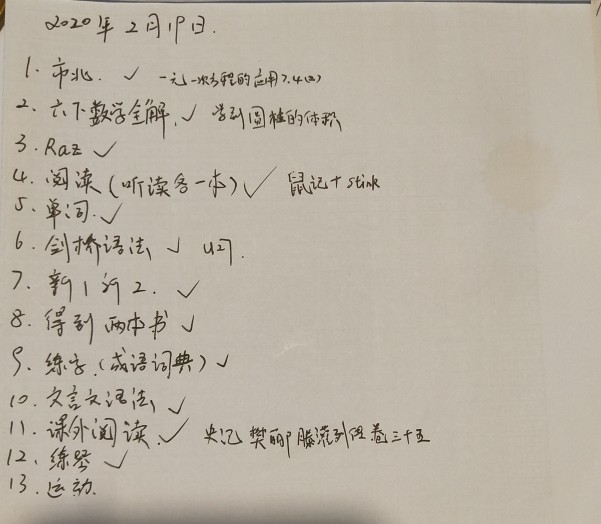 2020年2月19日.
1. 市北. ✓ 一元一次方程的应用7.4(2)
2. 六下数学全解. ✓ 学到圆柱的体积
3. Raz ✓
4. 阅读(听读各一本) ✓ 鼠记+stink
5. 单词. ✓
6. 剑桥语法 ✓ U27.
7. 新1新2. ✓
8. 得到 两本书 ✓
9. 练字.(成语词典) ✓
10. 文言文语法 ✓
11. 课外阅读. ✓ 史记 樊郦滕灌列传 卷三十五
12. 练琴 ✓
13. 运动.